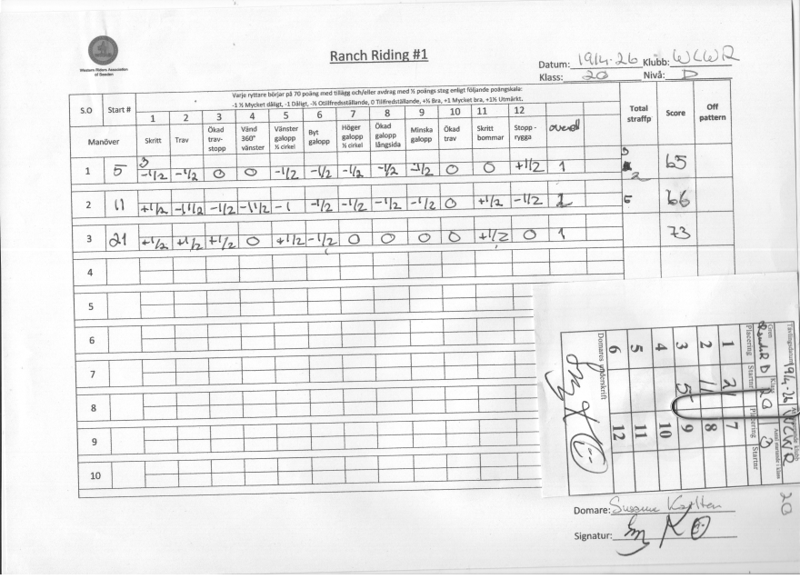 Western Riders Association
of Sweden
Ranch Riding #1
Datum: 19/4-26 Klubb: WCWR
Klass: 20 Nivå: D
Varje ryttare börjar på 70 poäng med tillägg och/eller avdrag med ½ poängs steg enligt följande poängskala:
-1 ½ Mycket dåligt, -1 Dåligt, -½ Otillfredsställande, 0 Tillfredställande, +½ Bra, +1 Mycket bra, +1½ Utmärkt.
S.O Start# 1 2 3 4 5 6 7 8 9 10 11 12 Total straffp Score Off pattern
Manöver Skritt Trav Ökad trav-stopp Vänd 360° vänster Vänster galopp ½ cirkel Byt galopp Höger galopp ½ cirkel Ökad galopp långsida Minska galopp Ökad trav Skritt bommar Stopp-rygga overall
3
1 5 -1/2 -1/2 0 0 -1/2 -1/2 -1/2 -1/2 -1/2 0 0 +1/2 1 65
2 11 +1/2 -1 1/2 -1/2 -1 1/2 -1 -1/2 -1/2 -1/2 -1/2 0 +1/2 -1/2 2 66
3 21 +1/2 +1/2 +1/2 0 +1/2 -1/2 0 0 0 0 +1/2 0 1 73
4
5
6
7
8
9
10
Tävlingsdatum 19/4-26 WCWR
Gren D Klass 20 3
Placering Startnr Placering Startnr
1 21 7
2 11 8
3 5 9
4 10
5 11
6 12
Domares underskrift
20
Domare:
Signatur: